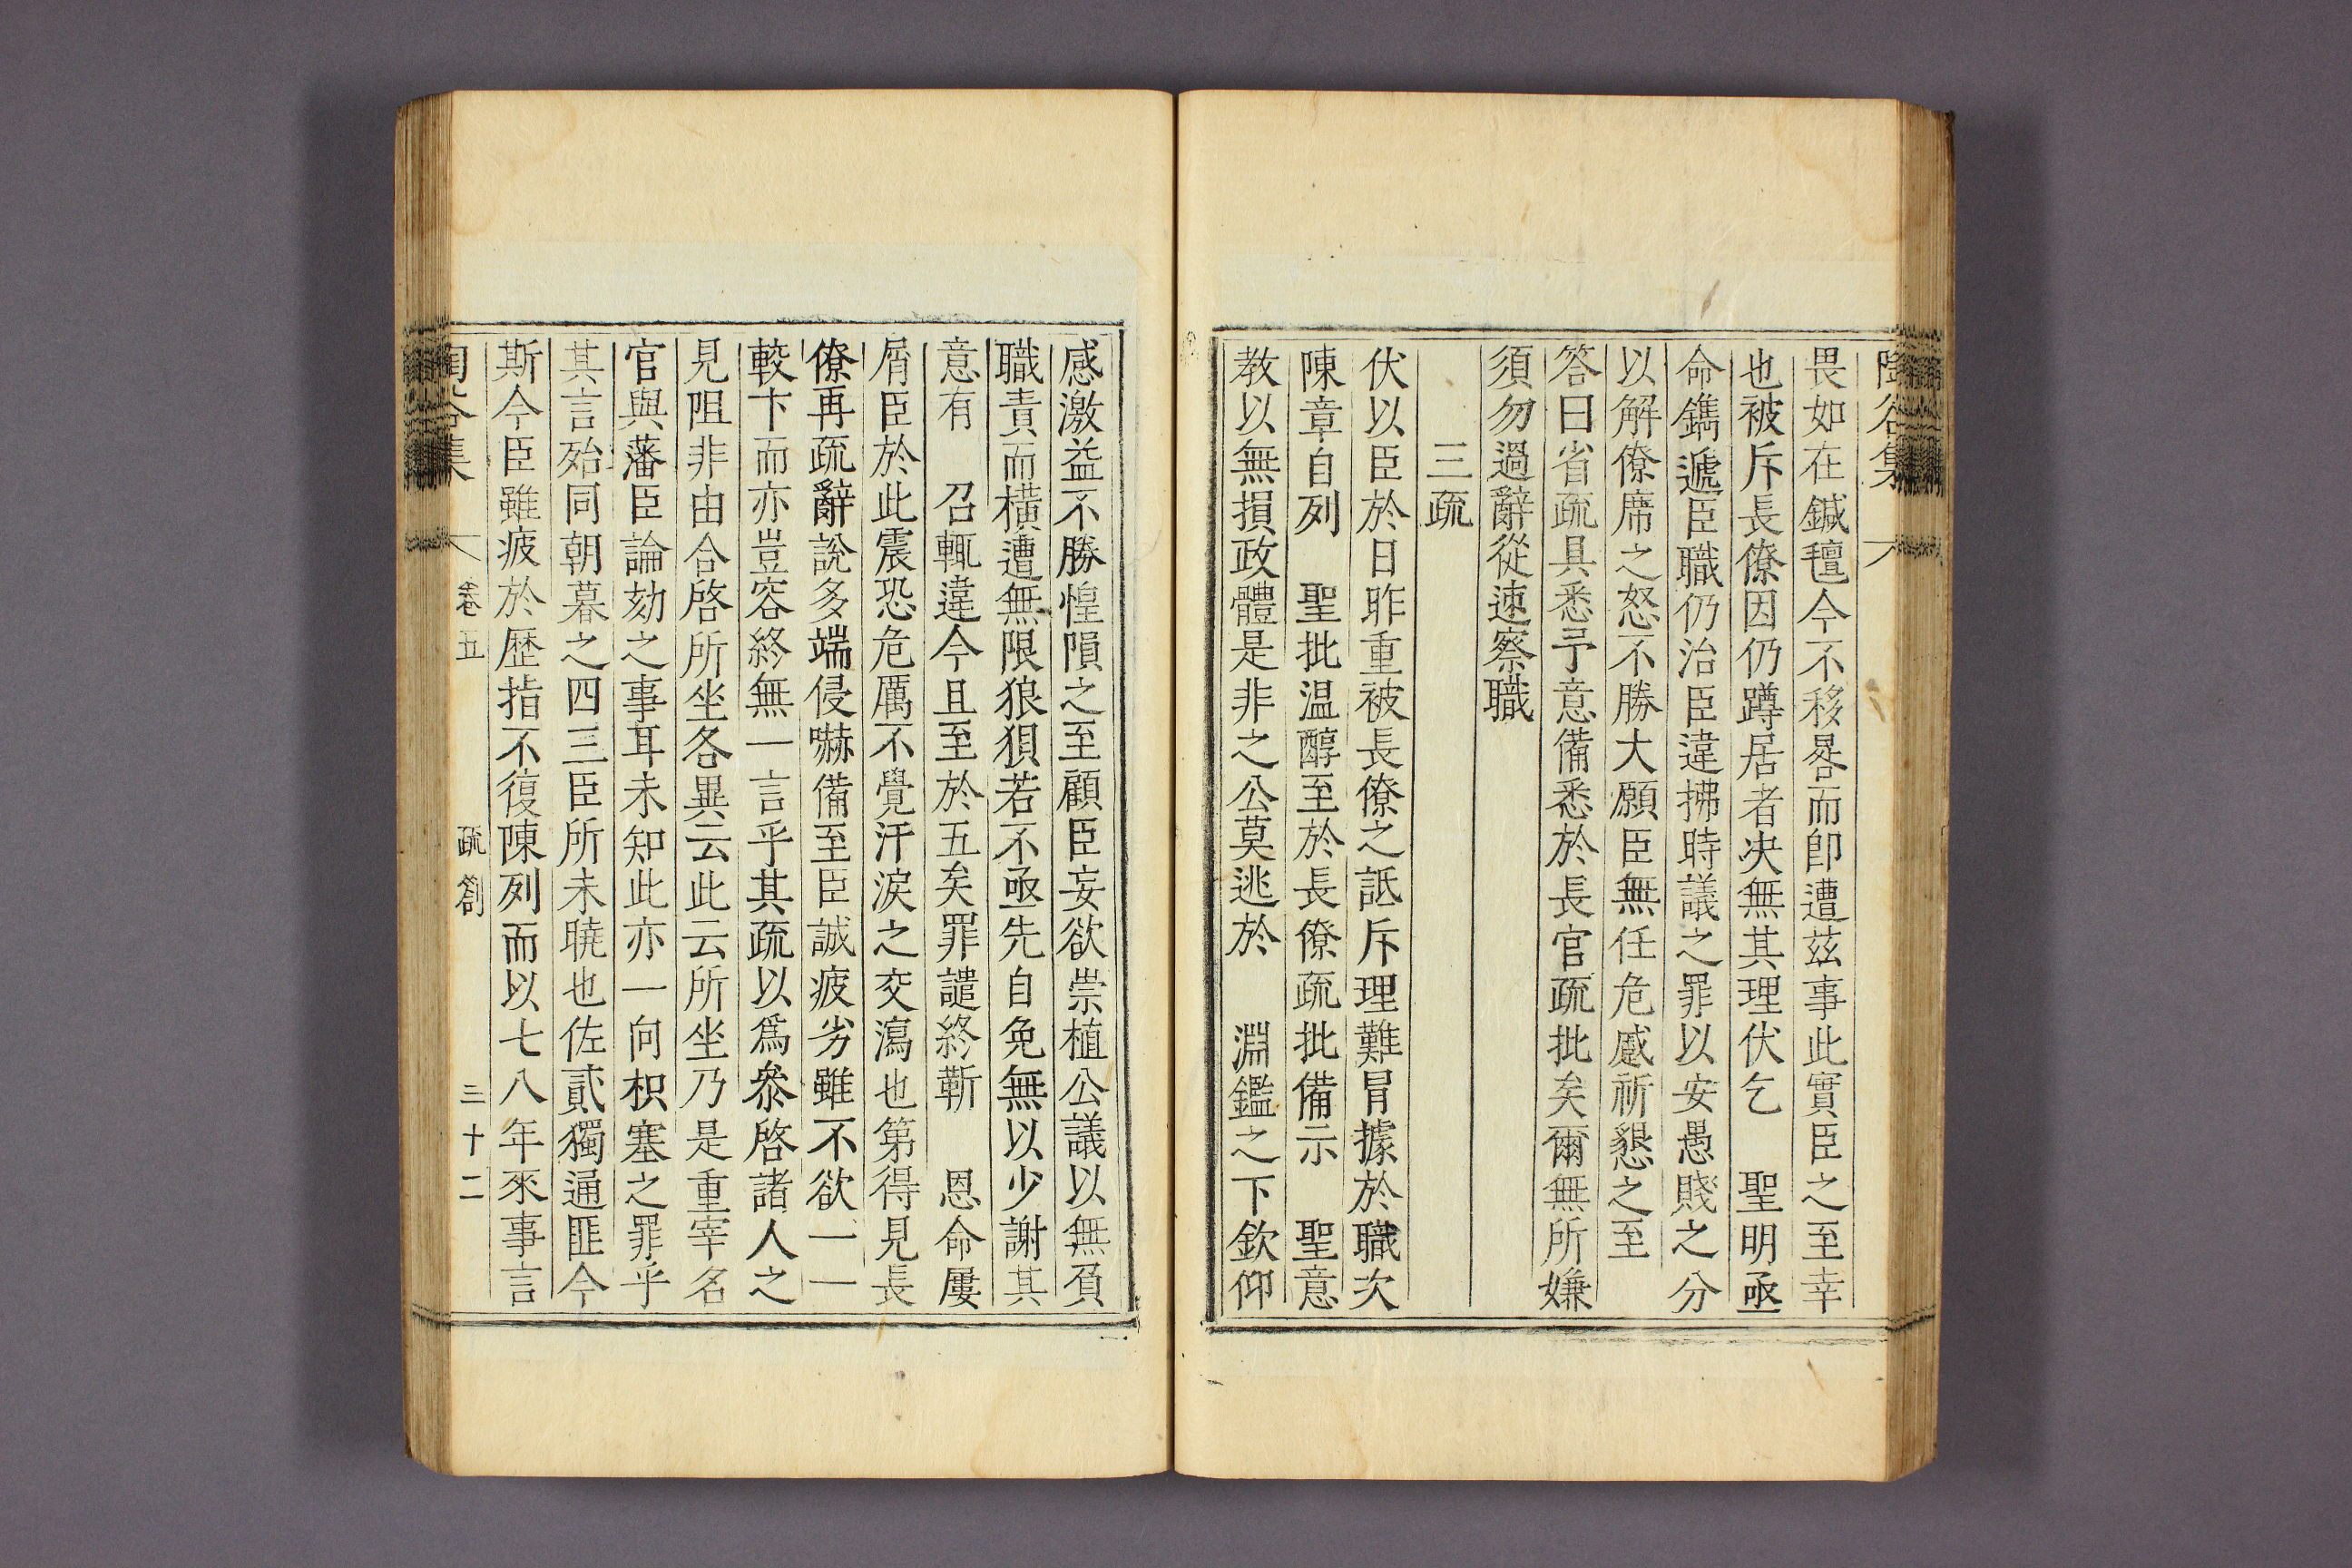 陶谷集
畏如在鍼氊今不移晷而卽遭茲事此實臣之至幸
也被斥長僚因仍蹲居者决無其理伏乞　聖明亟
命鐫遞臣職仍治臣違拂時議之罪以安愚賤之分
以解僚席之怒不勝大願臣無任危蹙祈懇之至
答曰省疏具悉予意備悉於長官疏批矣爾無所嫌
須勿過辭從速察職
三疏
伏以臣於日昨重被長僚之詆斥理難冒據於職次
陳章自列　聖批温醇至於長僚疏批備示　聖意
教以無損政體是非之公莫逃於　淵鑑之下欽仰
感激益不勝惶隕之至顧臣妄欲崇植公議以無負
職責而橫遭無限狼狽若不亟先自免無以少謝其
意有　召輒違今且至於五矣罪譴終靳　恩命屢
屑臣於此震恐危厲不覺汗淚之交瀉也第得見長
僚再疏辭說多端侵嚇備至臣誠疲劣雖不欲一一
較卞而亦豈容終無一言乎其疏以爲叅啓諸人之
見阻非由合啓所坐各異云此云所坐乃是重宰名
官與藩臣論劾之事耳未知此亦一向枳塞之罪乎
其言殆同朝暮之四三臣所未曉也佐貳獨通匪今
斯今臣雖疲於歷指不復陳列而以七八年來事言
陶谷集
卷五
疏箚
三十二